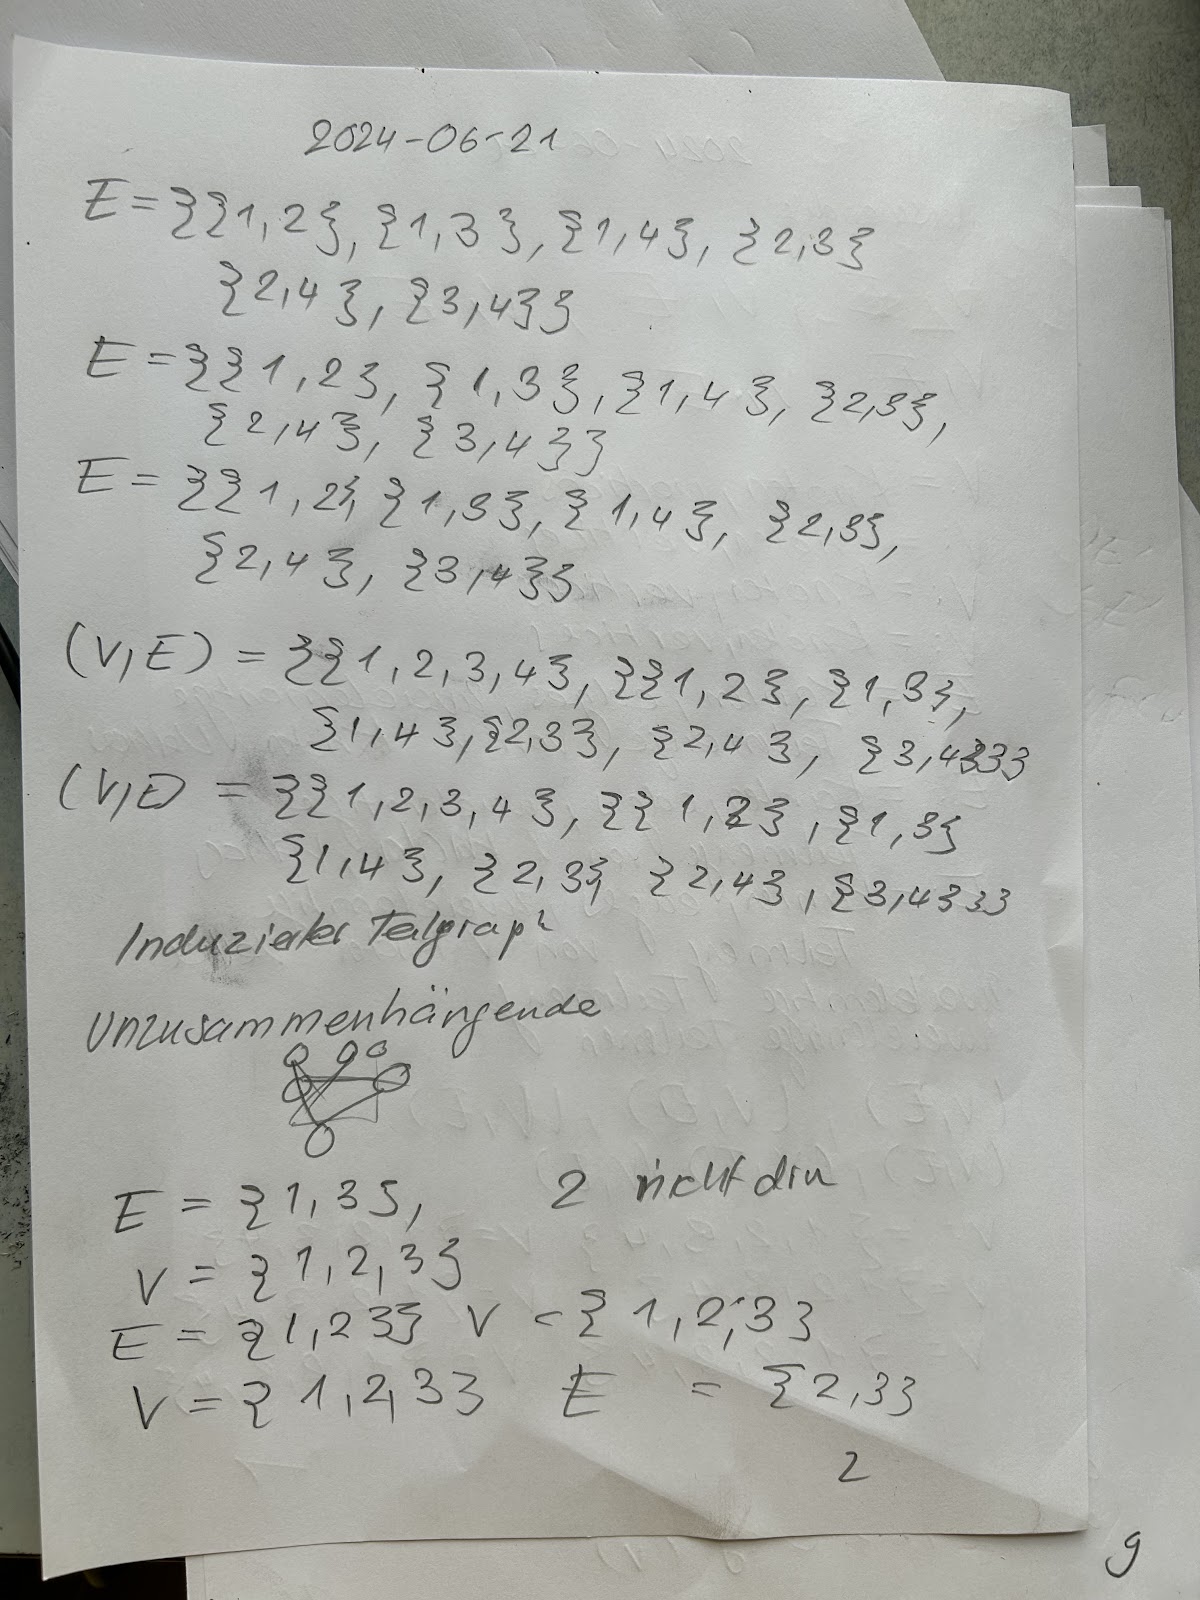 2024-06-21
E = {{1,2}, {1,3}, {1,4}, {2,3}
{2,4}, {3,4}}
E = {{1,2}, {1,3}, {1,4}, {2,3},
{2,4}, {3,4}}
E = {{1,2}, {1,3}, {1,4}, {2,3},
{2,4}, {3,4}}
(V,E) = {{1,2,3,4}, {{1,2}, {1,3},
{1,4}, {2,3}, {2,4}, {3,4}}}
(V,E) = {{1,2,3,4}, {{1,2}, {1,3}
{1,4}, {2,3}, {2,4}, {3,4}}}
Induzierter Teilgraph
Unzusammenhängende
E = {1,3}, 2 nicht drin
V = {1,2,3}
E = {1,2}} V = {1,2,3}
V = {1,2,3} E = {2,3}
2
9